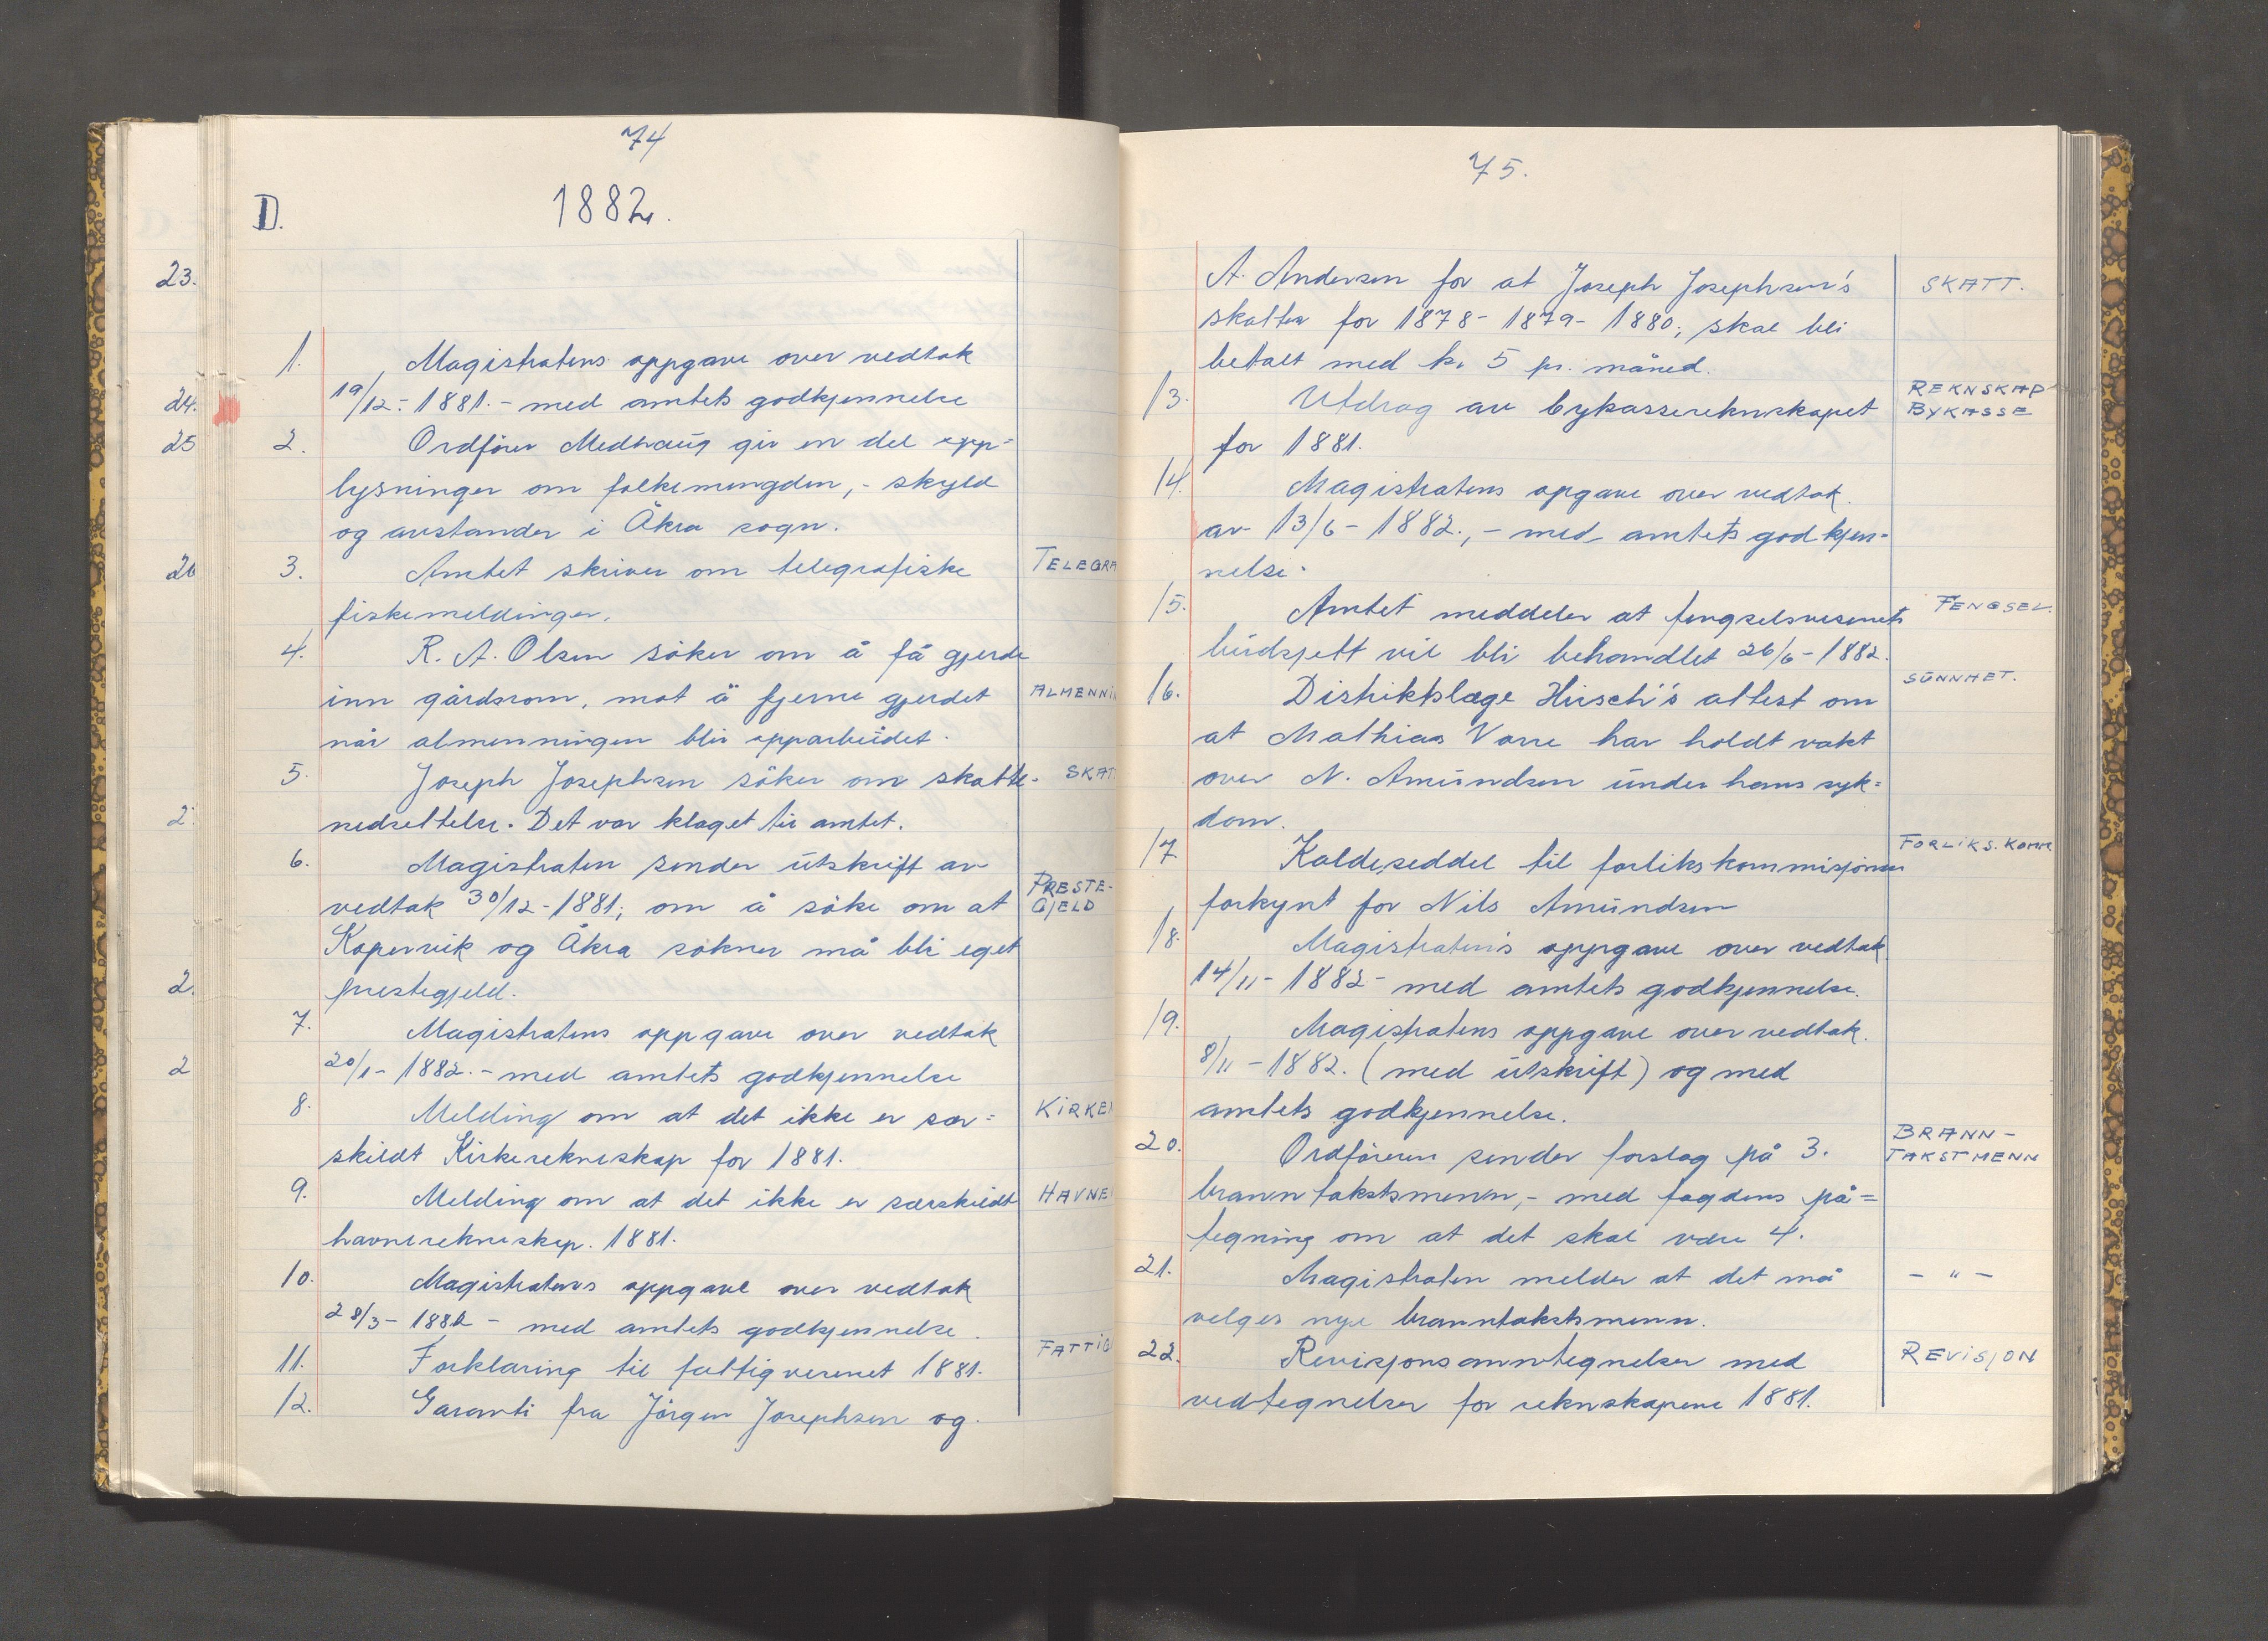 74
D. 1882.
23.
1. Magistratens oppgave over vedtak
24. 19/12 - 1881. - med amtets godkjennelse
25 2. Ordfører Medhaug gir en del opp=
lysninger om folkemengden, - skyld
og avstander i Åkra sogn.
26 3. Amtet skriver om telegrafiske TELEGRA
fiskemeldinger.
4. R. A. Olsen søker om å få gjerde
inn gårdsrom, mot å fjerne gjerdet ALMENNI
når almenningen blir opparbeidet.
5. Joseph Josephsen søker om skatte- SKAT
2 nedsettelse. Det var klaget til amtet.
6. Magistraten sender utskrift av
vedtak 30/12 - 1881; om å søke om at PRESTE-
GJELD
Kopervik og Åkra sokner må bli eget
2. prestegjeld.
7. Magistratens oppgave over vedtak
2 20/1 - 1882. - med amtets godkjennelse
8. Melding om at det ikke er sær= KIRKE
skildt Kirkerekneskap for 1881.
9. Melding om at det ikke er særskildt HAVNE
havnerekneskap. 1881.
10. Magistratens oppgave over vedtak
28/3 - 1882 - med amtets godkjennelse.
11. Forklaring til fattigvesenet 1881. FATTIG
12. Garanti fra Jørgen Josephsen og
75.
A. Andersen for at Joseph Josephsen's SKATT.
skatter for 1878 - 1879 - 1880; skal bli
betalt med kr 5 pr. måned.
13. Utdrag av bykasserekneskapet REKNSKAP
BYKASSE
for 1881.
14. Magistratens opgave over vedtak
av 13/6 - 1882., - med amtets godkjen-
nelse.
15. Amtet meddeler at fengselsvesenets FENGSEL.
budsjett vil bli behandlet 26/6 - 1882.
16. Distriktslæge Hirsch's attest om SUNNHET.
at Mathias Vorre har holdt vakt
over N. Amundsen under hans syk=
dom.
17. Kaldeseddel til forlikskommisjonen FORLIKS.KOMM
forkynt for Nils Amundsen
18. Magistraten's oppgave over vedtak
14/11 - 1882 - med amtets godkjennelse.
19. Magistratens oppgave over vedtak.
8/11 - 1882. (med utskrift) og med
amtets godkjennelse.
20. Ordføreren sender forslag på 3. BRANN-
TAKSTMENN
branntakstsmenn, - med fogdens på=
tegning om at det skal være 4.
21. Magistraten melder at det må - " -
velges nye branntakstsmenn.
22. Revisjonsanntegnelser med REVISJON
vedtegnelser for reknskapene 1881.